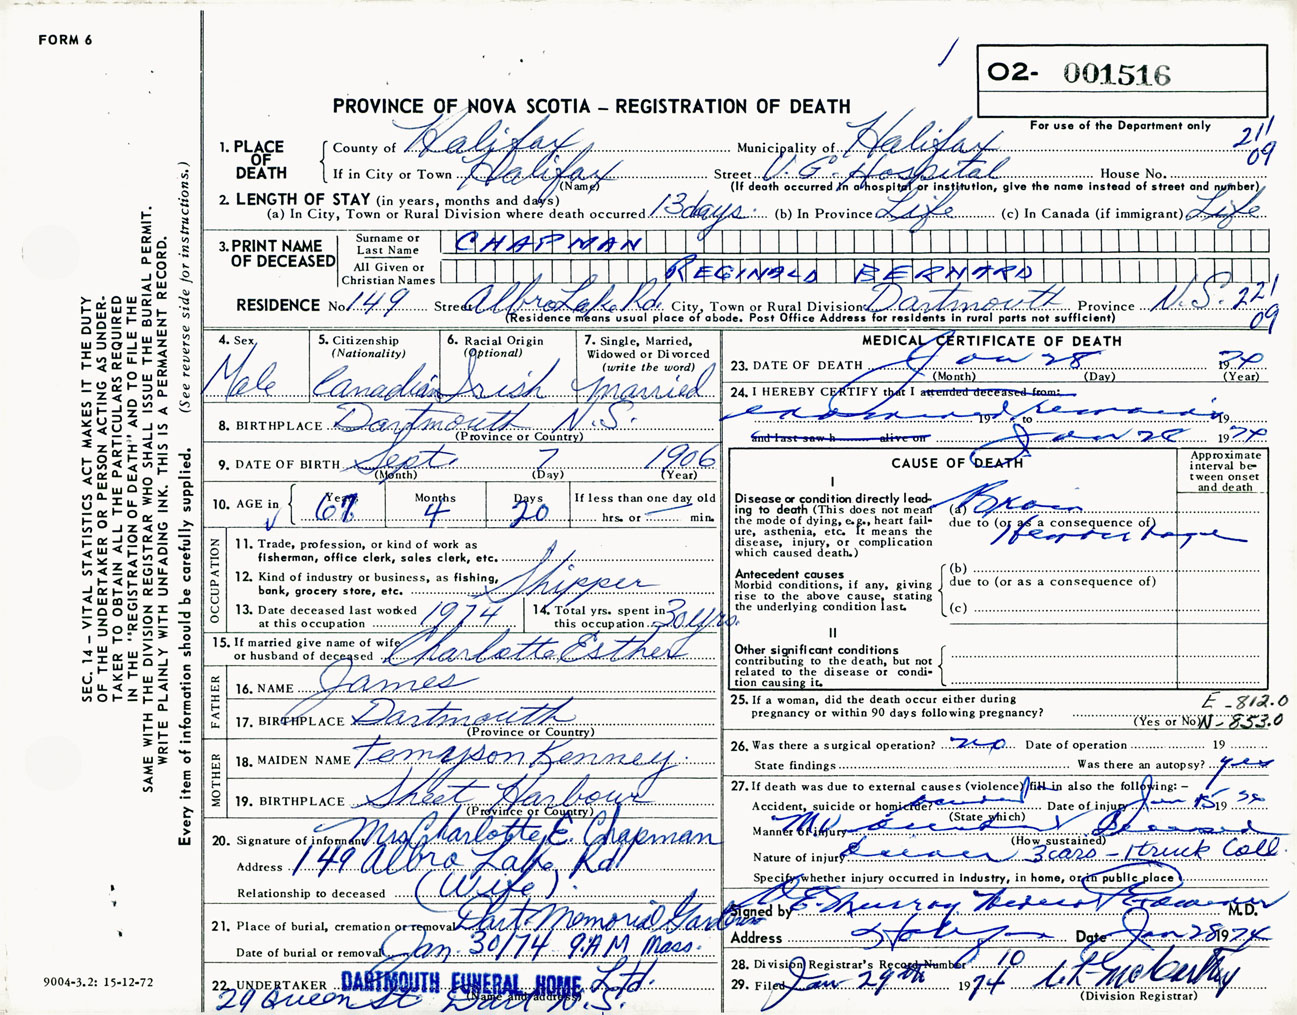 FORM 6
O2- 001516
For use of the Department only
PROVINCE OF NOVA SCOTIA – REGISTRATION OF DEATH
211
09
1. PLACE OF DEATH
County of Halifax Municipality of Halifax
If in City or Town Halifax Street V. G. Hospital House No.
(Name) (If death occurred in a hospital or institution, give the name instead of street and number)
2. LENGTH OF STAY (in years, months and days)
(a) In City, Town or Rural Division where death occurred 13 days (b) In Province Life (c) In Canada (if immigrant) Life
3. PRINT NAME OF DECEASED
Surname or Last Name CHAPMAN
All Given or Christian Names REGINALD BERNARD
RESIDENCE No 149 Street Albro Lake Rd. City, Town or Rural Division Dartmouth Province N.S. 221
09
(Residence means usual place of abode. Post Office Address for residents in rural parts not sufficient)
4. Sex
Male
5. Citizenship
(Nationality)
Canadian
6. Racial Origin
(Optional)
Irish
7. Single, Married,
Widowed or Divorced
(write the word)
Married
8. BIRTHPLACE Dartmouth N.S.
(Province or Country)
9. DATE OF BIRTH Sept. 7 1906
(Month) (Day) (Year)
10. AGE in
Years 67
Months 4
Days 20
If less than one day old
hrs. or min.
OCCUPATION
11. Trade, profession, or kind of work as
fisherman, office clerk, sales clerk, etc.
12. Kind of industry or business, as fishing,
bank, grocery store, etc. Shipper
13. Date deceased last worked
at this occupation 1974
14. Total yrs. spent in
this occupation 30 yrs.
15. If married give name of wife
or husband of deceased Charlotte Esther
FATHER
16. NAME James
17. BIRTHPLACE Dartmouth
(Province or Country)
MOTHER
18. MAIDEN NAME Kenney
19. BIRTHPLACE Sheet Harbour
(Province or Country)
20. Signature of informant Mrs. Charlotte E. Chapman
Address 149 Albro Lake Rd
Relationship to deceased (Wife)
21. Place of burial, cremation or removal Dart. Memorial Gardens
Date of burial or removal Jan. 30/74 9 A.M. Mass.
22. UNDERTAKER DARTMOUTH FUNERAL HOME Ltd.
(Name and address)
29 Queen St Dart N.S.
MEDICAL CERTIFICATE OF DEATH
23. DATE OF DEATH Jan 28 1974
(Month) (Day) (Year)
24. I HEREBY CERTIFY that I attended deceased from:
examined remains 19 to 19
and last saw h alive on Jan 28 1974
CAUSE OF DEATH
Approximate
interval be-
tween onset
and death
I
Disease or condition directly lead-
ing to death (This does not mean
the mode of dying, e.g., heart fail-
ure, asthenia, etc. It means the
disease, injury, or complication
which caused death.)
(a) Brain
due to (or as a consequence of)
Hemorrhage
Antecedent causes
Morbid conditions, if any, giving
rise to the above cause, stating
the underlying condition last.
(b)
due to (or as a consequence of)
(c)
II
Other significant conditions
contributing to the death, but not
related to the disease or condi-
tion causing it.
25. If a woman, did the death occur either during
pregnancy or within 90 days following pregnancy?
(Yes or No)
E - 812.0
N - 853.0
26. Was there a surgical operation? no Date of operation 19
State findings Was there an autopsy? yes
27. If death was due to external causes (violence) fill in also the following: –
Accident, suicide or homicide? Accident Date of injury Jan 15 1974
(State which)
Manner of injury MV accident Deceased
(How sustained)
Nature of injury 3 cars - truck Coll.
Specify whether injury occurred in Industry, in home, or in public place
Signed by E. Murray Medical Examiner M.D.
Address Halifax Date Jan 28 1974
28. Division Registrar's Record Number 10
29. Filed Jan 29th 1974 McCarthy
(Division Registrar)
SEC. 14 – VITAL STATISTICS ACT MAKES IT THE DUTY
OF THE UNDERTAKER OR PERSON ACTING AS UNDER-
TAKER TO OBTAIN ALL THE PARTICULARS REQUIRED
IN THE "REGISTRATION OF DEATH" AND TO FILE THE
SAME WITH THE DIVISION REGISTRAR WHO SHALL ISSUE THE BURIAL PERMIT.
WRITE PLAINLY WITH UNFADING INK. THIS IS A PERMANENT RECORD.
Every item of information should be carefully supplied. (See reverse side for instructions.)
9004-3.2: 15-12-72